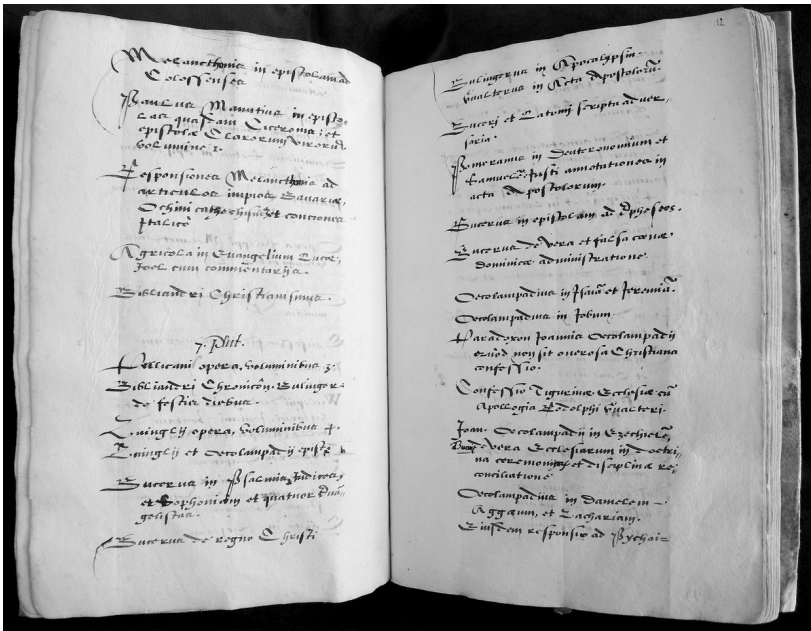 Melancthonis in epistolam ad
Colossenses
Paulus Manutius in episto-
las quasdam Ciceronis, et
epistolae Clarorum virorum
volumine 1.
Responsiones Melancthonis ad
articulos impios Bavariae,
Ochini et conciones
Italicè
Agricola in Evangelium Lucae,
Joel cum commentarijs.
Bibliandri Christianismus.
7. Plut.
Pellicani opera, voluminibus 3.
Bibliandri Chronicôn. Bulinger.
de festis diebus.
Zuinglij opera, voluminibus 4.
Zuinglij et Oecolampadij epist.
Bucerus in Psalmis, Judices,
et Sophoniam et quatuor Evan-
gelistas.
Bucerus de regno Christi
12
Bulingerus in Apocalypsin.
Vualterus in Acta Apostolorū.
Buceri et Latomi scripta adver-
saria.
Pomeranus in Deuteronomium et
Samuelē. Justi annotationes in
acta Apostolorum.
Bucerus in epistolam ad Ephesios.
Bucerus de vera et falsa caenae
dominicae administratione.
Oecolampadius in Isaiā et Jeremiā.
Oecolampadius in Jobum.
Paradoxon Joannis Oecolampadij
quod non sit onerosa Christianis
confessio.
Confessio Tigurinae Ecclesiae cū
Apollogia Rodolphi Vualteri.
Joan. Oecolampadij in Ezechielē,
Bucer de vera Ecclesiarum in doctri-
na ceremonijs et disciplina re-
conciliatione
Oecolampadius in Danielem
Aggaeum, et Zachariam.
Eiusdem responsio ad Pyrhai-